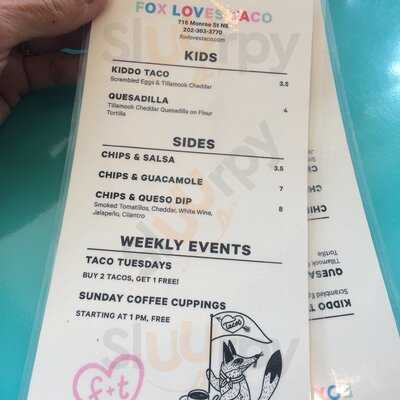 FOX LOVES TACO
716 Monroe St NE
202-363-3770
foxlovestaco.com
KIDS
KIDDO TACO
Scrambled Eggs & Tillamook Cheddar 3.5
QUESADILLA
Tillamook Cheddar Quesadilla on Flour 4
Tortilla
SIDES
CHIPS & SALSA 3.5
CHIPS & GUACAMOLE 7
CHIPS & QUESO DIP
Smoked Tomatillos, Cheddar, White Wine, 8
Jalapeño, Cilantro
WEEKLY EVENTS
TACO TUESDAYS
BUY 2 TACOS, GET 1 FREE!
SUNDAY COFFEE CUPPINGS
STARTING AT 1 PM, FREE
Tacos
f+t
Sluurpy
KIDDO T
Scrambled Eg
QUESA
Tillamook
Tortilla
CHIP
CHI